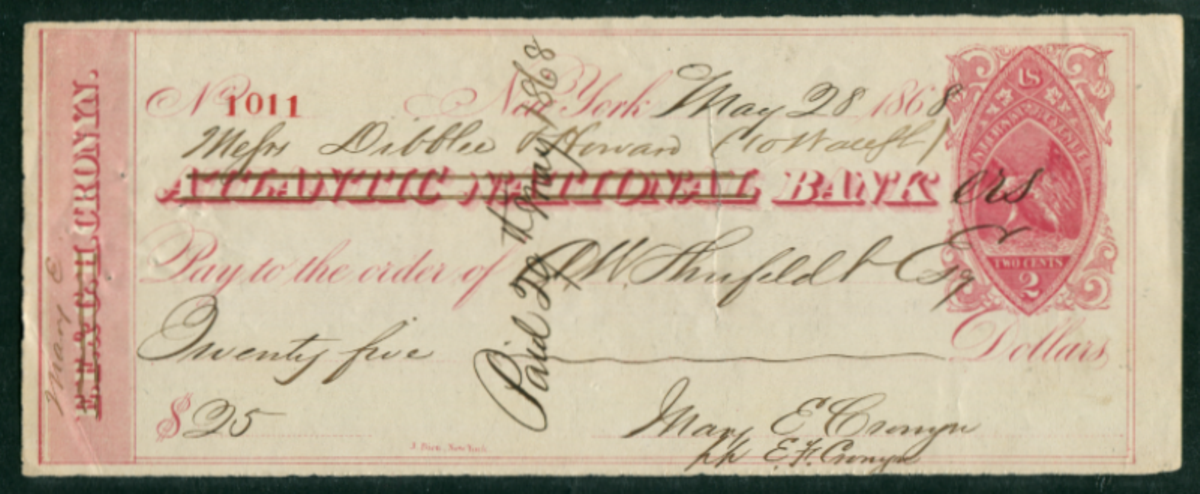 No 1011 New York May 28 1868
Messrs Dibblee & Howard (10 Wall St)
ATLANTIC NATIONAL BANK ers
Pay to the order of R.W. Shufeldt Esq
Twenty five Dollars
$25
Mary E Cronyn
E.F. Cronyn
Paid May 1868
Mary E
CRONYN.
US
INTERNAL REVENUE
TWO CENTS
2